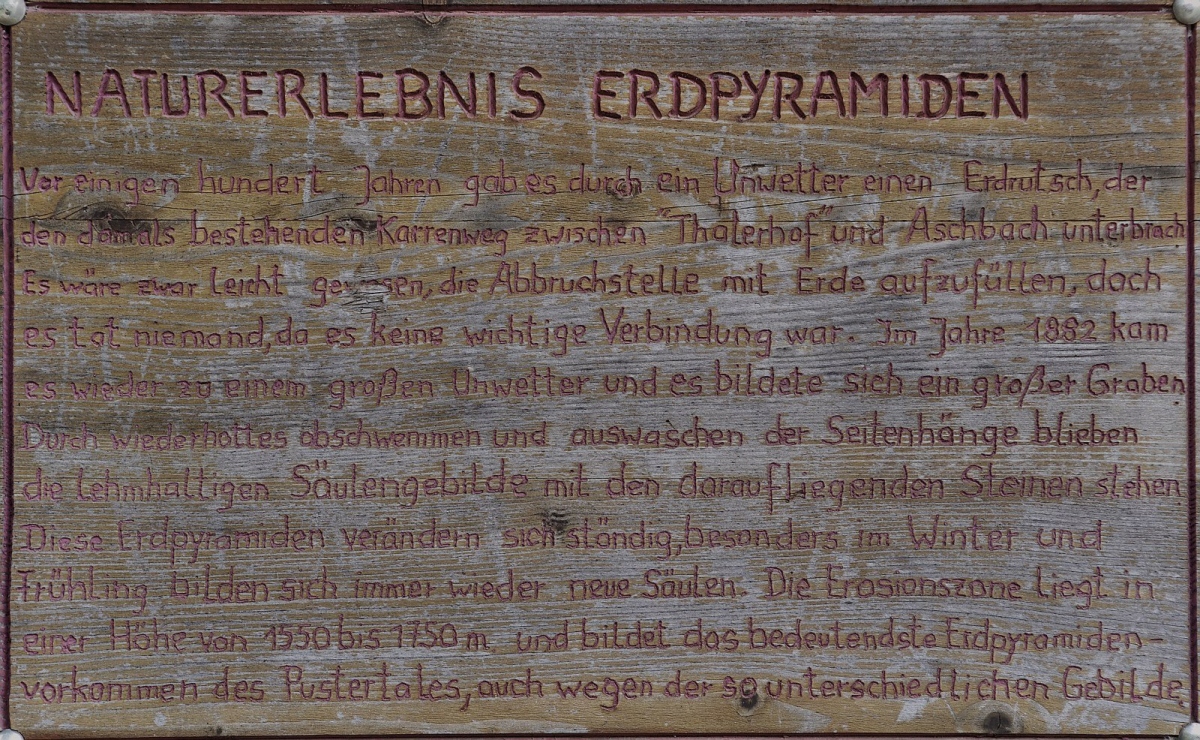 NATURERLEBNIS ERDPYRAMIDEN
Vor einigen hundert Jahren gab es durch ein Unwetter einen Erdrutsch, der
den damals bestehenden Karrenweg zwischen "Thalerhof" und Aschbach unterbrach
Es wäre zwar leicht gewesen, die Abbruchstelle mit Erde aufzufüllen, doch
es tat niemand, da es keine wichtige Verbindung war. Im Jahre 1882 kam
es wieder zu einem großen Unwetter und es bildete sich ein großer Graben.
Durch wiederholtes abschwemmen und auswaschen der Seitenhänge blieben
die lehmhaltigen Säulengebilde mit den daraufliegenden Steinen stehen
Diese Erdpyramiden verändern sich ständig, besonders im Winter und
Frühling bilden sich immer wieder neue Säulen. Die Erosionszone liegt in
einer Höhe von 1550 bis 1750 m und bildet das bedeutendste Erdpyramiden-
vorkommen des Pustertales, auch wegen der so unterschiedlichen Gebilde.